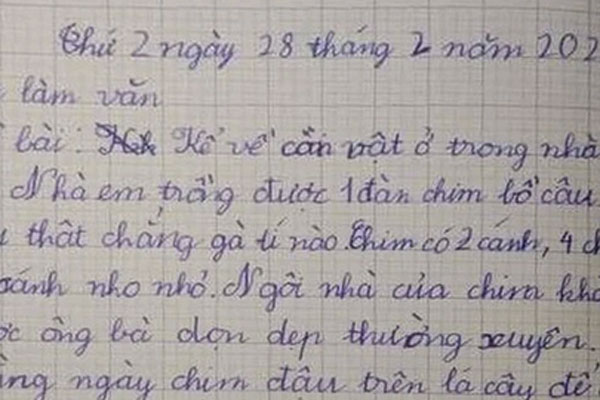 Thứ 2 ngày 28 tháng 2 năm 202
làm văn
bài: Kể về cần vật ở trong nhà
Nhà em trồng được 1 đàn chim bồ câu
thật chẳng gà tí nào. Chim có 2 cánh, 4 ch
sánh nho nhỏ. Ngôi nhà của chim khô
ông bà dọn dẹp thường xuyên.
ngày chim đậu trên lá cây để